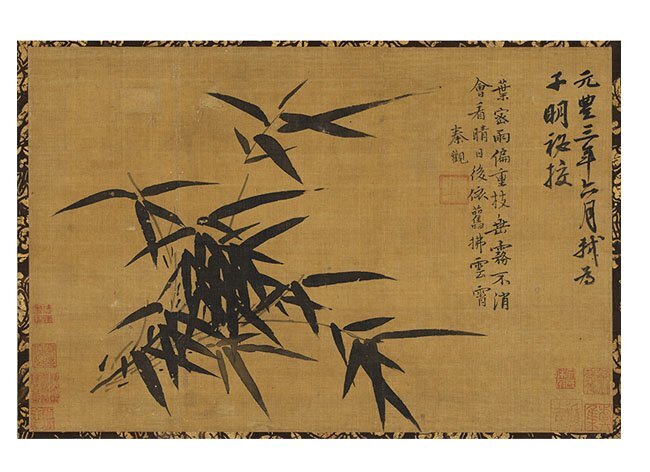 元豐三年六月軾為
子明秘挍
葉密雨偏重枝垂霧不消
會看晴日後依舊拂雲霄
秦觀